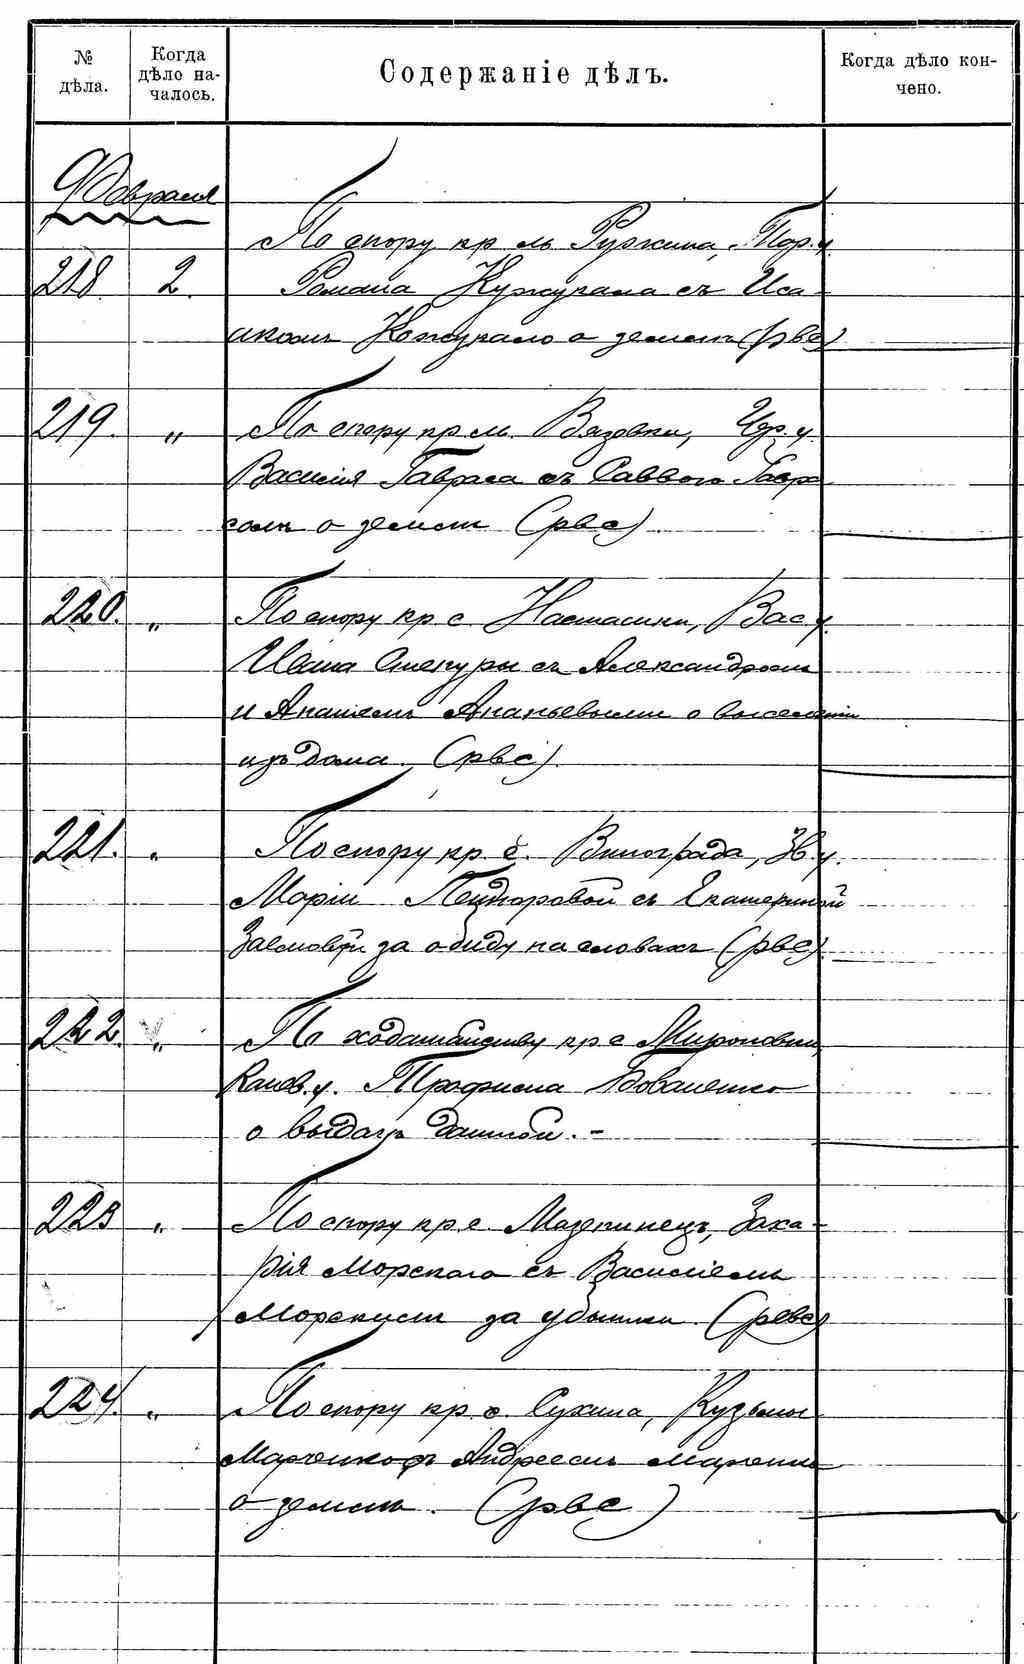 № дѣла.
Когда дѣло на-
чалось.
Содержаніе дѣлъ.
Когда дѣло кон-
чено.
Февраля
По спору кр. м. Ружина,
218 2. Романа Кужукала съ Иса-
икомъ Кожукало о землѣ (рвс)
219. „ По спору кр. м. Вязовки, Чер. у.
Василія Гавраса съ Саввою Гавра
сомъ о землѣ (рвс)
220. „ По спору кр. с. Настасики, Вас. у.
Ивана Снегуры съ Александромъ
и Ананіемъ Ананьевыми о выселеніи
изъ дома. (рвс).
221. „ По спору кр. с. Винограда, Зв. у.
Маріи съ Екатериной
за обиду на словахъ (рвс)
222. „ По ходатайству кр. с. Мироновки,
Канев. у. Трофима
о выдачѣ данной. -
223 „ По спору кр. с. Мартинецъ, Заха-
рія Морского съ Василіемъ
Морскимъ за убытки. (рвс)
224. „ По спору кр. с. Сухина, Кузьмы
Марченко съ Андреемъ Марченко
о землѣ. (рвс)